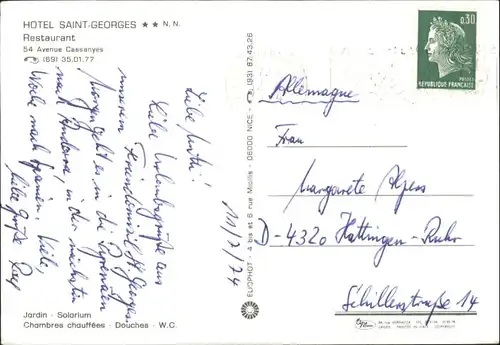 HOTEL SAINT-GEORGES ★★ N.N.
Restaurant
54 Avenue Cassanyes
(69) 35.01.77
Liebe Mutti!
Liebe Urlaubsgrüße aus
unserem Feriendomizil St. Georges.
Morgen geht es in die Pyrenäen
nach Andorra, in der nächsten
Woche nach Spanien. Viele,
liebe Grüße
11/7/74
Jardin - Solarium
Chambres chauffées - Douches - W.C.
ELIOPHOT - 4 bis et 6 rue Maïlis - 06000 NICE - (93) 87.43.26
0,30
POSTES
REPUBLIQUE FRANÇAISE
Allemagne
Frau
Margarete Alpers
D-4320 Hattingen-Ruhr
Schillerstraße 14